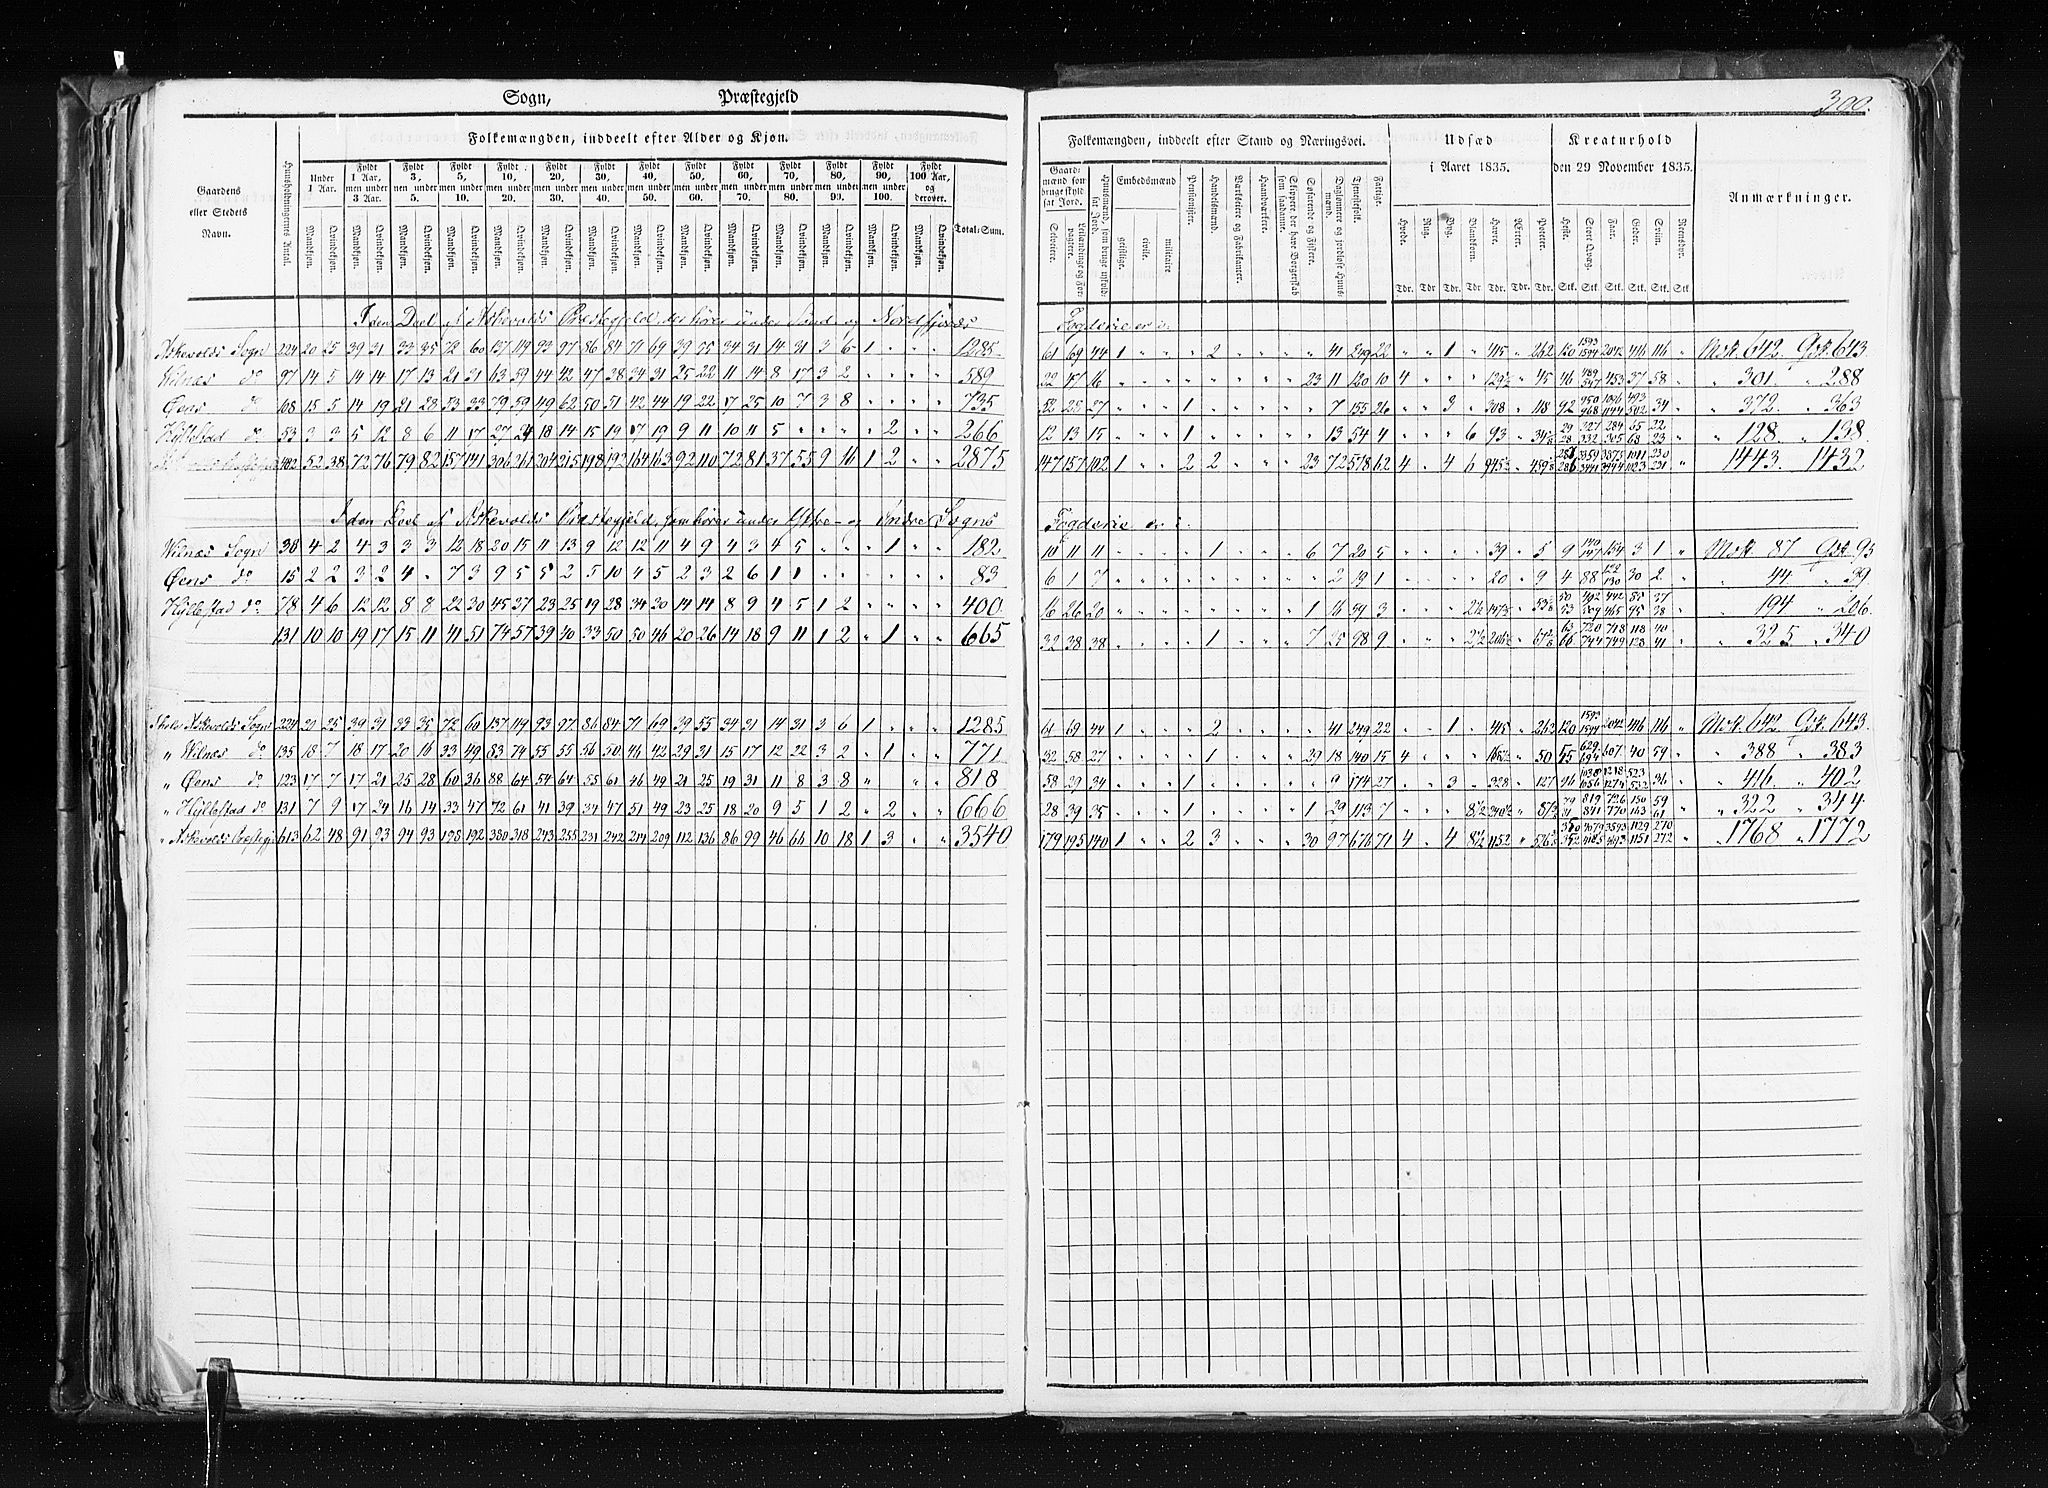 Sogn, Præstegjeld
300.
Gaardens eller Stedets Navn.
Huusholdningernes Antal.
Folkemængden, inddeelt efter Alder og Kjøn.
Under 1 Aar. Fyldt 1 Aar, men under 3 Aar. Fyldt 3, men under 5. Fyldt 5, men under 10. Fyldt 10, men under 20. Fyldt 20, men under 30. Fyldt 30, men under 40. Fyldt 40, men under 50. Fyldt 50, men under 60. Fyldt 60, men under 70. Fyldt 70, men under 80. Fyldt 80, men under 90. Fyldt 90, men under 100. Fyldt 100 Aar, og derover. Total-Sum.
Mandkjøn. Qvindekjøn.
Folkemængden, inddeelt efter Stand og Næringsvei. Udsæd i Aaret 1835. Kreaturhold den 29 November 1835. Anmærkninger.
Embedsmænd geistlige. civile. militaire Pensionister. Handelsmænd. Værkseiere og Fabrikanter. Haandværkere. Skippere, der have Borgerskab som saadanne. Søfarende og Fiskere. Tjenestefolk. Fattige.
Hvede. Rug. Byg. Blandkorn. Havre. Ærter. Poteter. Heste. Stort Qvæg. Faar. Geder. Sviin. Reensdyr.
Tdr. Tdr Tdr. Tdr. Tdr. Tdr. Tdr. Stk. Stk. Stk. Stk. Stk. Stk
I den Deel af Askevolds Præstegjeld der hører under Sønd- og Nordfjords Fogderie er i:
Askevolds Sogn 224 20 25 39 31 33 35 72 60 137 119 93 97 86 84 71 69 39 55 34 31 14 31 3 6 1 " " " 1285. 61 69 44 1 2 41 249 22 1 415 262 120 1593 1594 2042 416 116 Mk. 642. Qk. 643.
Wilnæs do 97 14 5 14 14 17 13 21 31 63 59 44 42 47 38 34 31 25 22 11 14 8 17 3 2 589 22 17 16 23 11 120 10 4 45 46 489 547 453 37 58 " 301. " 288
Øens do 68 15 5 14 19 21 28 53 33 79 59 49 62 50 51 42 44 19 22 17 25 10 7 3 8 735 52 25 27 1 7 155 26 3 308 118 92 950 968 493 502 34 " 372. " 363
Hyllestad do 53 3 3 5 12 8 6 11 17 27 24 18 14 15 19 17 19 9 11 10 11 5 2 266 12 13 15 1 13 54 4 6 93 29 28 327 332 284 305 65 68 22 23 " 128. " 138.
402 52 38 72 76 79 82 157 141 306 261 204 215 198 192 164 163 92 110 72 81 37 55 9 16 1 2 2875 147 157 102 1 2 2 23 72 578 62 4 4 6 1011 1023 230 231 " 1443. 1432
I den Deel af Askevolds Præstegjeld, som hører under Yttre- og Indre Sogns Fogderie er i:
Wilnæs Sogn 38 4 2 4 3 3 3 12 18 20 15 11 13 9 12 12 11 4 9 4 3 4 5 1 182 10 11 11 1 6 7 20 5 39 5 9 140 147 154 3 1 Mk. 87 Qk. 95
Øens do 15 2 2 3 2 4 " 7 3 9 5 5 2 5 10 4 5 2 3 2 6 1 1 83 6 1 7 2 19 1 20 9 4 88 122 130 30 2 " 44 " 39
Hyllestad do 78 4 6 12 12 8 8 22 30 45 37 23 25 19 28 34 30 14 14 8 9 4 5 1 2 400 16 26 20 1 16 59 3 2½ 50 53 492 509 442 465 85 95 37 38 " 194 " 206.
131 10 10 19 17 15 11 41 51 74 57 39 40 33 50 50 46 20 26 14 18 9 11 1 2 " 1 665 32 38 38 1 7 25 98 9 2½ 63 66 720 744 718 749 118 128 40 41 " 325. " 340
I hele Askevolds Sogn 224 20 25 39 31 33 35 72 60 137 119 93 97 86 84 71 69 39 55 34 31 14 31 3 6 1 1285 61 69 44 1 2 41 249 22 1 415 262 120 1593 1594 2042 416 116 Mk. 642 Qk. 643.
" Wilnæs do 135 18 7 18 17 20 16 33 49 83 74 55 55 56 50 46 42 29 31 15 17 12 22 3 2 " 1 771 32 58 27 1 29 18 140 15 4 50 55 629 694 607 40 59 " 388 " 383
" Øens do 123 17 7 17 21 25 28 60 36 88 64 54 64 55 61 46 49 21 25 19 31 11 8 3 8 818 58 29 34 1 9 174 27 3 328 127 96 1038 1056 1218 1274 523 532 36 " 416 " 402
" Hyllestad do 131 7 9 17 24 16 14 33 47 72 61 41 39 34 47 51 49 23 25 18 20 9 5 1 2 " 2 666 28 39 35 1 1 29 113 7 8½ 79 81 819 841 726 770 150 163 59 61 " 322 " 344
" Askevolds Præstegj. 613 62 48 91 93 94 93 198 192 380 318 243 255 231 242 214 209 112 136 86 99 46 66 10 18 1 3 " " 3540 179 195 140 1 2 3 30 97 676 71 4 4 8½ 1152 350 352 3593 1129 1151 270 272 " 1768 " 1772